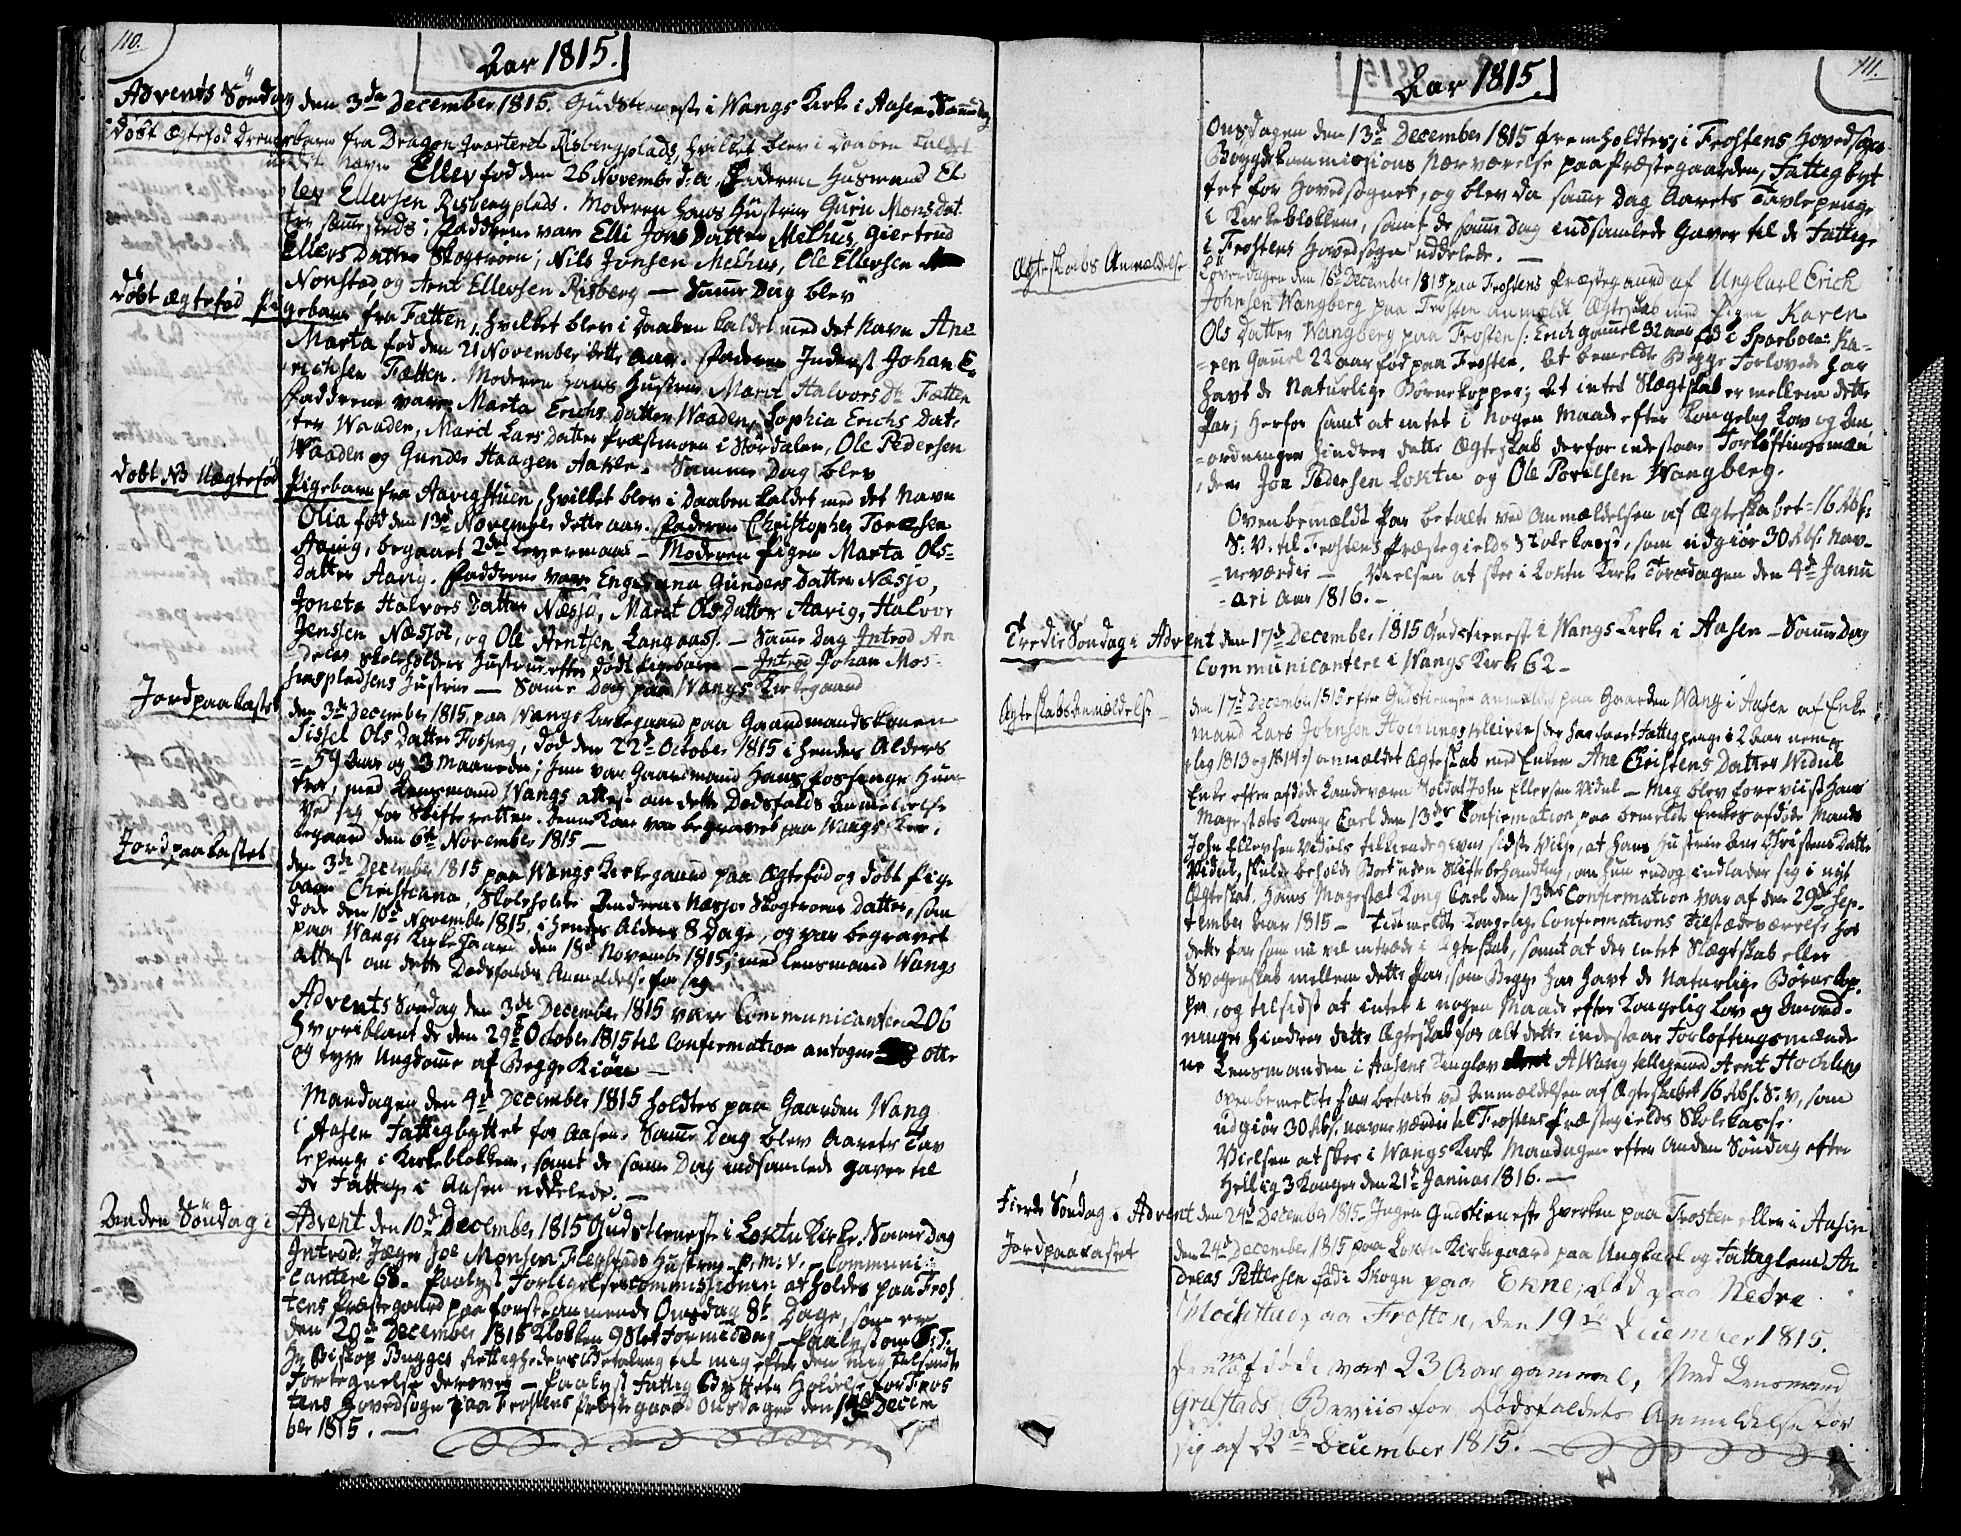 110.
Aar 1815.
Advents Søndag den 3de December 1815. Gudstienest i Wangs Kirke i Aasen. Samme Dag
Døbt Ægtefød Drengebarn fra Dragon Qvarteret Risbergplads, hvilket blev i Daaben kaldet
med det Navn Ellev fød den 26 November d. a. Faderen Husmand El
lev Ellevsen Risbergplads. Moderen hans Hustrue Guru Monsdat
ter sammesteds; Fadderne vare Elli Jons Datter Melhus, Giertrud
Ellevs Datter Skogtrøen; Nils Jonsen Melhus, Ole Ellevsen
Nonstad, og Arnt Ellevsen Risberg — Samme Dag blev
Døbt Ægtefød Pigebarn fra Fætten, hvilket blev i Daaben kaldet med det Navn Ane
Marta fød den 21 November dette Aar. Faderen Inderst Johan E-
richsen Fætten. Moderen hans Hustrue Marit Halvors Dt. Fætten
Fadderne vare Marta Erichs Datter Waaden, Sophia Erichs Dat-
ter Waaden, Marit Lars Datter Præstmoen i Størdalen, Ole Pedersen
Waaden og Gunder Haagen Aakle. Samme Dag blev
Døbt NB Uægtefød Pigebarn fra Aavigstuen, hvilket blev i Daaben kaldet med det Navn
Olia fød den 13de November dette aar. Faderen Christopher Toresen
Aavig, begaaet 2det Leyermaal — Moderen Pigen Marta Ols-
datter Aavig. Fadderne vare Engebana Gunders Datter Næsjo,
Joneta Halvors Datter Næsjo, Marit Ols Datter Aavig, Halvor
Jenssen Næsjoe, og Ole Arntsen Langaas. — Samme Dag Introd An
dreas Skoleholders Hustrue efter Dødt Pigebarn — Introd Johan Mos-
huspladsens Hustrue — Samme Dag paa Wangs Kirkegaard
Jordpaakastet den 3de December 1815, paa Wangs Kirkegaard paa Gaardmandskonen
Sissel Ols Datter Fossing, død den 22de October 1815 i hendes Alders
59 Aar og 3 Maaneder; hun var Gaardmand Hans Fossings Hus-
true, med Lensmand Wangs attest om dette Dødsfalds Anmeldelse
ved sig for Skifteretten. Denne Kone var begravet paa Wangs Kir-
kegaard den 6te November 1815 —
Jordpaakastet den 3de December 1815 paa Wangs Kirkegaard paa Ægtefød og døbt Pige
barn Christiana, Skoleholder Andreas Næsjos Skogtroens Datter, som
døde den 10de November 1815, i hendes Alders 8 Dage, og var begravet
paa Wangs Kirkegaard den 18de November 1815, med Lensmand Wangs
attest om dette Dødsfalds Anmeldelse for sig.
Advents Søndag den 3de December 1815 vare Communicantere 206
Hvoriblant de den 29de October 1815 til Confirmation antagne otte
og tyve Ungdomme af Begge Kiøn —
Mandagen den 4de December 1815 holdtes paa Gaarden Wang
i Aasen Fattigbyttet for Aasen. Samme Dag blev Aarets Tav
lepenge i Kirkeblokken, samt de samme Dag indsamlede Gaver til
de Fattige i Aasen uddelede. —
Anden Søndag i Advent den 10de December 1815 Gudstieneste i Loktu Kirke. Samme Dag
Introd: Jæger Joe Monsen Flegstads Hustrue p. m. v. — Communi-
cantere 68. Paalyst Forligelsescommissionen at holdes paa Fros
tens Præstegaard paa førstkommende Onsdag 8te Dage, som er
den 20de December 1815 Klokken 9 Slet Formiddag — Paalyst om S. T.
Hr. Biskop Bugges Rettigheders Betaling til mig efter den mig tilsendte
Fortegnelse derover — Paalyst Fattig Byttets Holdelse for Fros
tens Hovedsogn paa Frostens Præstegaard Onsdagen den 13de Decem
ber 1815. —
111.
Aar 1815.
Onsdagen den 13de December 1815 fremholdtes i Frostens Hovedsogns
Bøygdekommissions Nærværelse paa Præstegaarden, Fattigbyt
tet for Hovedsognet, og blev da samme Dag Aarets Tavlepenge
i Kirkeblokken, samt de samme Dag indsamlede Gaver til de Fattige
i Frostens Hovedsogn uddelede. —
Ægteskabs Anmældelse Løverdagen den 16de December 1815 paa Frostens Præstegaard af Ungkarl Erich
Johnsen Wangberg paa Frosten anmeldt Ægteskab med Pigen Karen
Ols Datter Wangberg paa Frosten /: Erich gammel 32 aar fød i Sparboen: Ka-
ren Gamel 22 aar fød paa Frosten. At bemeldte Begge Forlovede har
havt de Naturlige Børnekopper; at intet Slægtskab er mellem dette
Par; herfor samt at intet i nogen Maade efter Kongelig Lov og An
ordninger hindrer dette Ægteskab derfor indestaar Forløftningsmæn
dene Jon Pedersen Loktu og Ole Povelsen Wangberg.
Ovenbemældt Par betalte ved Anmældelsen af Ægteskabet 16 Rbs:
S: V. til Frostens Præstegields Skolekasse, som udgiør 30 Rbs. Nav-
neværdie — Vielsen at skee i Loktu Kirke Torsdagen den 4de Janu
ari Aar 1816. —
Tredie Søndag i Advent den 17de December 1815 Gudstienest i Wangs Kirke i Aasen — Samme Dag
Communicantere i Wangs Kirke 62 —
Ægteskabs Anmældelse — den 17de December 1815 efter Gudstienesten anmeldt paa Gaarden Wang i Aasen af Enke
mand Lars Johnsen Hochlings (der har havt Fattigpenge i 2 Aar nem-
lig 1813 og 1814) anmældet Ægteskab med Enken Ane Christens Datter Widul
Enke efter afdøde Landeværn Soldat John Ellevsen Vidul — Mig blev foreviist Hans
Magestæts Konge Carl den 13des Confirmation paa bemeldte Enkes afdøde Mands
John Ellevsen Viduls tilkiendegivne sidste Villie, at hans Hustrue Ane Christens Datter
Vidul, skulde beholde Boet uden Skiftebehandling, om hun endog indlader sig i nyt
Ægteskab. Hans Magestæt Kong Carl den 13des Confirmation var af den 29de Sep-
tember Aar 1815 — Bemeldte Kongelige Confirmations Tilstædeværelse hos
dette Par som nu vil indtræde i Ægteskab, samt at der intet Slægtskab eller
Svogerskab mellem dette Par, som Begge har havt de Naturlige Børnekop-
per, og tilsidst at intet i nogen Maade efter Kongelig Lov og Anord-
ninger hindrer dette Ægteskab for alt dette indestaar Forløftningsmænde
ne Lensmanden i Aasens Tinglav A Wang tilligemed Arnt Hochling
ovenbemeldte Par betalte ved Anmældelsen af Ægteskabet 16 Rbs. S. v, som
udgiør 30 Rbs. navneværdie til Frostens Præstegields Skolekasse.
Vielsen at skee i Wangs Kirke Mandagen efter Anden Søndag efter
Hellig 3 Konger den 21de Januar 1816. —
Fierde Søndag i Advent den 24de December 1815. Ingen Gudstieneste hverken paa Frosten eller i Aasen
Jordpaakastet den 24de December 1815 paa Loktu Kirkegaard paa Ungkarl og Fattiglem An
dreas Pettersen fød i Skogn paa Ekne; død paa Nedre
Moksttad paa Frosten, den 19de December 1815.
Denne afdøde var 23 Aar gammel, Med Lensmand
Grilstads Beviis for Dødsfaldets Anmeldelse for
sig af 22de December 1815. —